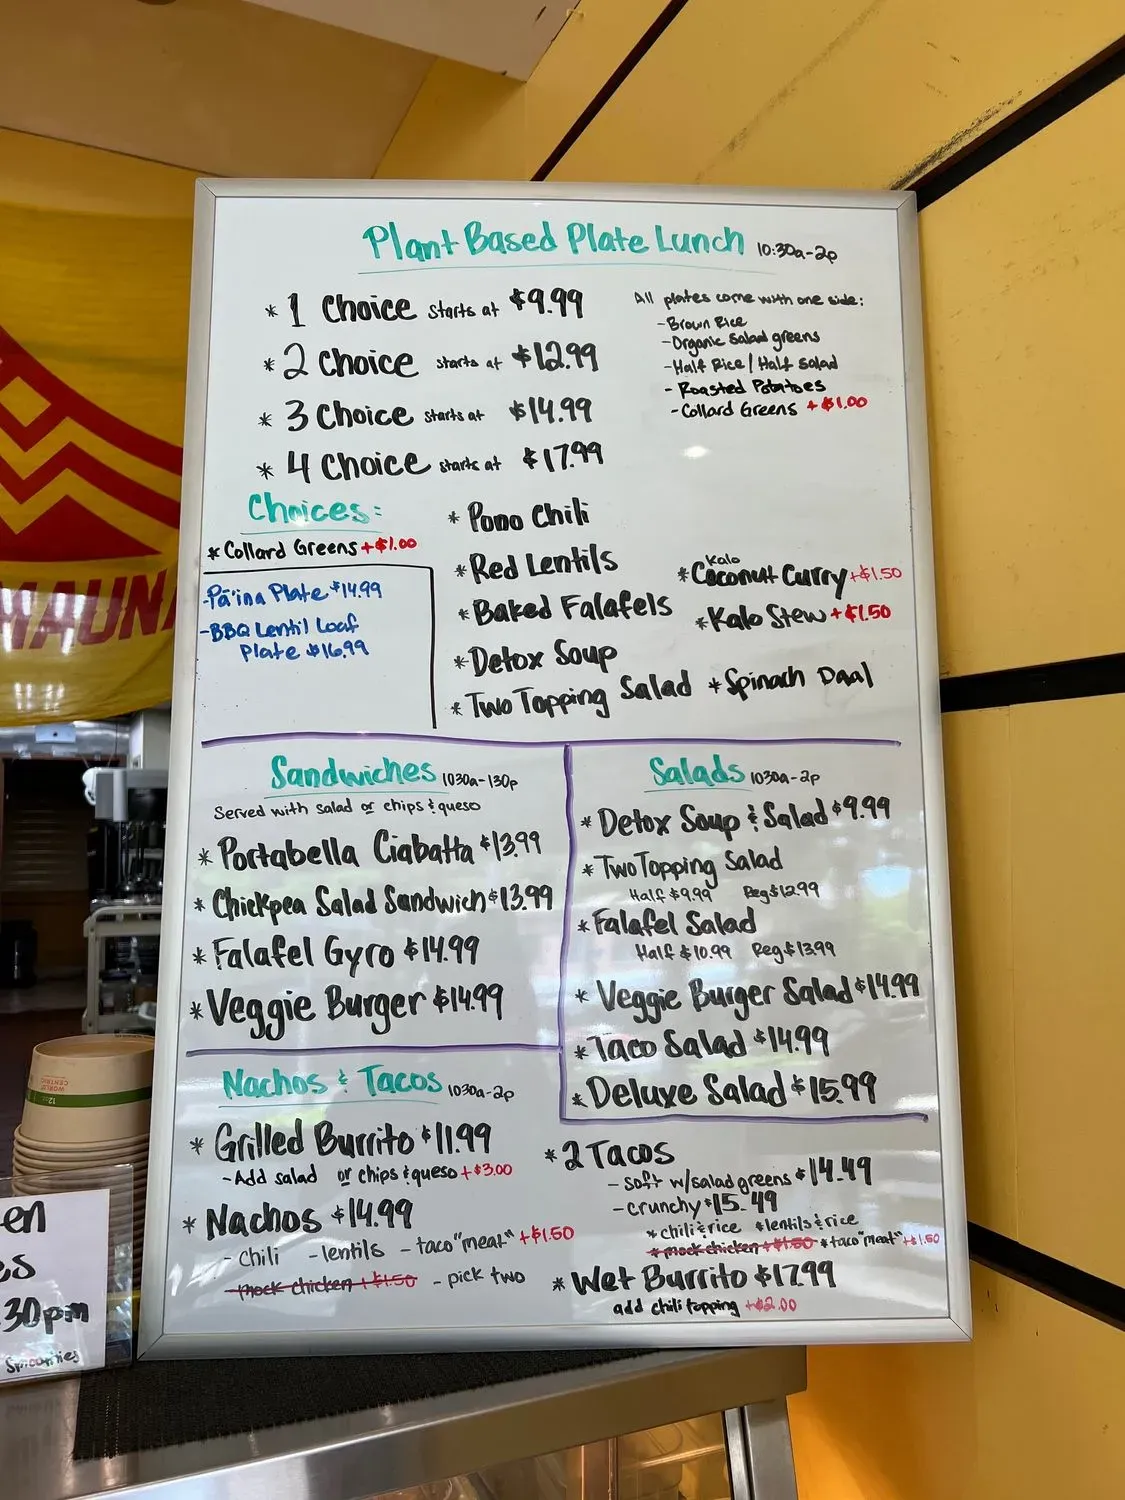 Plant Based Plate Lunch 10:30a-2p
* 1 Choice starts at $9.99
* 2 Choice starts at $12.99
* 3 Choice starts at $14.99
* 4 Choice starts at $17.99
All plates come with one side:
- Brown Rice
- Organic Salad greens
- Half Rice / Half Salad
- Roasted Potatoes
- Collard Greens +$1.00
Choices:
* Collard Greens +$1.00
- Pā'ina Plate $14.99
- BBQ Lentil Loaf
Plate $16.99
* Pono Chili
* Red Lentils
* Baked Falafels
* Detox Soup
* Two Topping Salad
Kalo
* Coconut Curry +$1.50
* Kalo Stew +$1.50
* Spinach Daal
Sandwiches 1030a-130p
Served with salad or chips & queso
* Portabella Ciabatta $13.99
* Chickpea Salad Sandwich $13.99
* Falafel Gyro $14.99
* Veggie Burger $14.99
Salads 1030a-2p
* Detox Soup & Salad $9.99
* Two Topping Salad
Half $9.99 Reg $12.99
* Falafel Salad
Half $10.99 Reg $13.99
* Veggie Burger Salad $14.99
* Taco Salad $14.99
* Deluxe Salad $15.99
Nachos & Tacos 1030a-2p
* Grilled Burrito $11.99
- Add salad or chips & queso +$3.00
* Nachos $14.99
- Chili - lentils - taco "meat" +$1.50
- mock chicken +$1.50 - pick two
* 2 Tacos
- soft w/salad greens $14.49
- crunchy $15.49
* chili & rice * lentils & rice
* mock chicken +$1.50 * taco "meat" +$1.50
* Wet Burrito $17.99
add chili topping +$2.00
MAUNA
WORLD CENTRIC
12oz
en
es
30pm
Smoothies